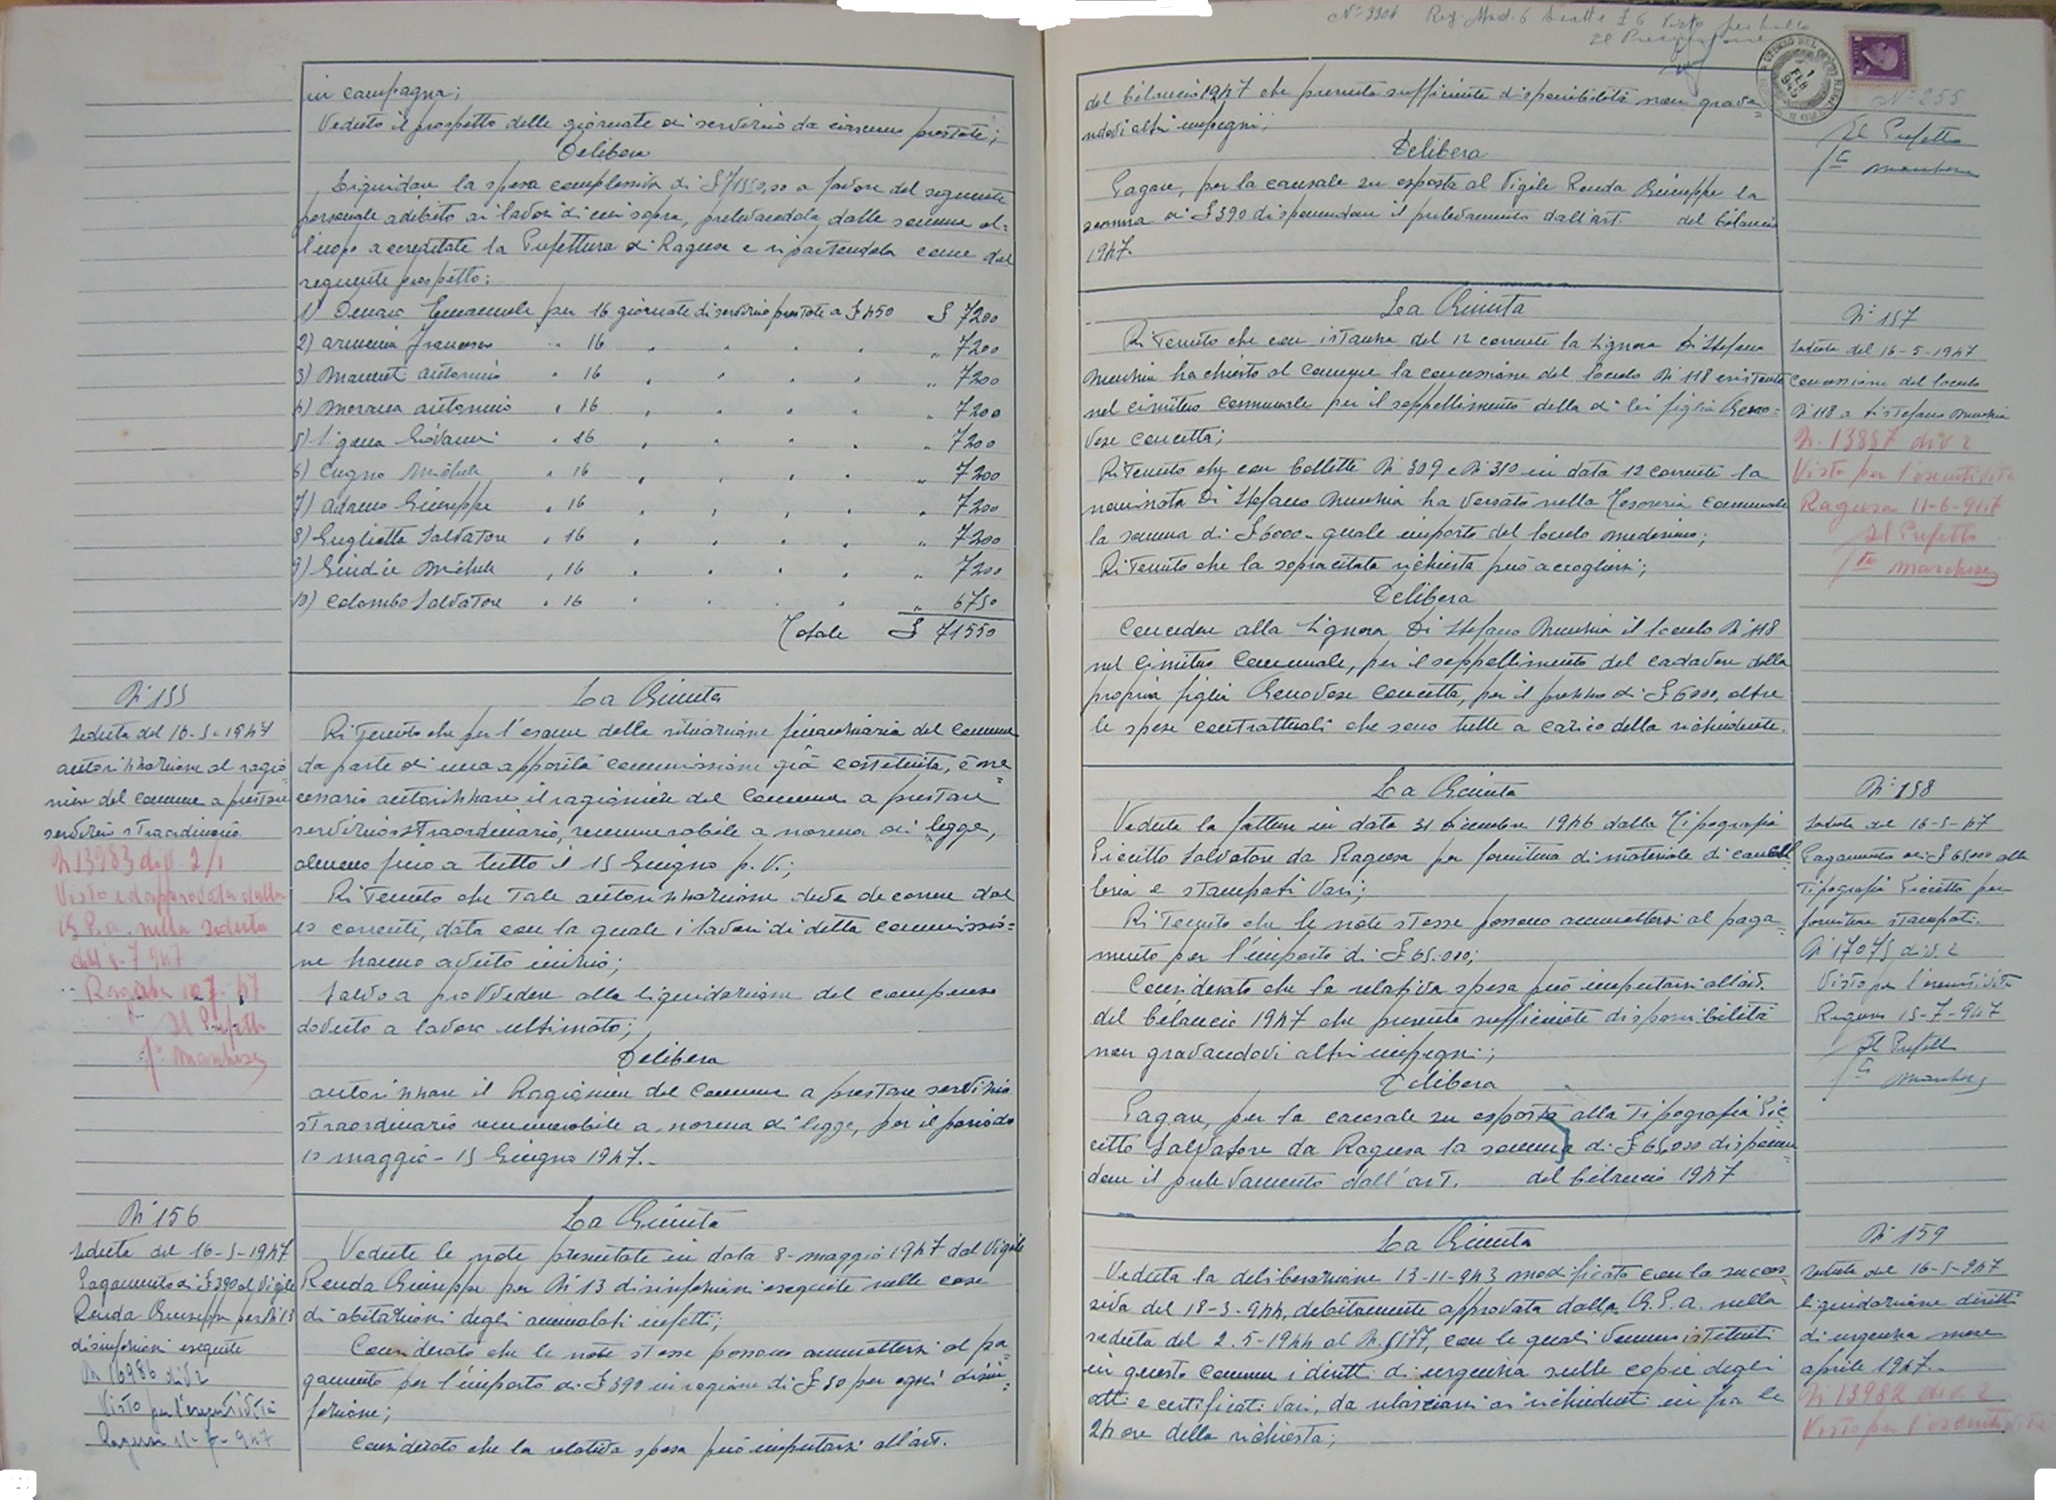 in campagna;
Veduto il prospetto delle giornate di servizio da ciascuno prestate;
Delibera
Liquidare la spesa complessiva di £ 71550,00 a favore del seguente
personale adibito ai lavori di cui sopra, prelevandola dalle somme al-
l'uopo accreditate la Prefettura di Ragusa e ripartendola come dal
seguente prospetto:
1) Emanuele per 16 giornate di servizio prestate a £ 450 £ 7200
2) Armenia Francesco " 16 " " " " " 7200
3) Antonino " 16 " " " " " 7200
4) Morana Antonino " 16 " " " " " 7200
5) Giovanni " 16 " " " " " 7200
6) Cugno Michele " 16 " " " " " 7200
7) Adamo Giuseppe " 16 " " " " " 7200
8) Guglielto Salvatore " 16 " " " " " 7200
9) Giudice Michele " 16 " " " " " 7200
10) Colombo Salvatore " 16 " " " " " 6750
Totale £ 71550
N° 155
Seduta del 16-5-1947
Autorizzazione al ragio-
niere del Comune a prestare
servizio straordinario
N 13983 div. 2/1
Visto ed approvato dalla
G.P.A. nella seduta
del 8-7-947
Ragusa 10-7-47
Il Prefetto
f° Marchese
La Giunta
Ritenuto che per l'esame della situazione finanziaria del Comune
da parte di una apposita commissione già costituita, è ne=
cessario autorizzare il ragioniere del Comune a prestare
servizio straordinario, remunerabile a norma di legge,
almeno fino a tutto il 15 Giugno p.v.;
Ritenuto che tale autorizzazione deve decorrere dal
10 corrente, data con la quale i lavori di detta commissio=
ne hanno avuto inizio;
Salvo a provvedere alla liquidazione del compenso
dovuto a lavoro ultimato;
Delibera
Autorizzare il Ragioniere del Comune a prestare servizio
straordinario remunerabile a norma di legge, per il periodo
10 maggio - 15 Giugno 1947.-
N° 156
Seduta del 16-5-1947
Pagamento di £ 390 al Vigile
Renda Giuseppe per N 13
disinfezioni eseguite
N 16986 div 2
Visto per l'esecutività
Ragusa 947
La Giunta
Vedute le note presentate in data 8-maggio 1947 dal Vigile
Renda Giuseppe per N 13 disinfezioni eseguite nelle case
di abitazioni degli ammalati infetti;
Considerato che le note stesse possono ammettersi al pa=
gamento per l'importo di £ 390 in ragione di £ 30 per ogni disin=
fezione;
Considerato che la relativa spesa può imputarsi all'art.
N° 3304 Reg. Mod. 6 Visto per bollo
N° 255
Il Prefetto
f° Marchese
del bilancio 1947 che presenta sufficiente disponibilità non grava=
ndovi altri impegni;
Delibera
Pagare, per la causale su esposta al Vigile Renda Giuseppe la
somma di £ 390 disponendone il prelevamento dall'art. del bilancio
1947.
La Giunta
Ritenuto che con istanza del 12 corrente la Signora Di Stefano
Nunzia ha chiesto al Comune la concessione del loculo N 118 esistente
nel cimitero comunale per il seppellimento della di lei figlia Geno=
vese Concetta;
Ritenuto che con bollette N 309 e N 310 in data 12 corrente la
nominata Di Stefano Nunzia ha versato nella Tesoreria Comunale
la somma di £ 6000.- quale importo del loculo medesimo;
Ritenuto che la sopracitata richiesta può accogliersi;
Delibera
Concedere alla Signora Di Stefano Nunzia il loculo N 118
nel Cimitero Comunale, per il seppellimento del cadavere della
propria figlia Genovese Concetta, per il prezzo di £ 6000, oltre
le spese contrattuali che sono tutte a carico della richiedente.
N° 157
Seduta del 16-5-1947
Concessione del loculo
N 118 a Di Stefano Nunzia
N. 13857 div. 2
Visto per l'esecutività
Ragusa 11-6-947
Il Prefetto
f° Marchese
La Giunta
Veduta la fattura in data 31 Dicembre 1946 dalla Tipografia
Piccitto Salvatore da Ragusa per fornitura di materiale di cancel
leria e stampati vari;
Ritenuto che le note stesse possono ammettersi al paga=
mento per l'importo di £ 65.000;
Considerato che la relativa spesa può imputarsi all'art.
del bilancio 1947 che presenta sufficiente disponibilità
non gravandovi altri impegni;
Delibera
Pagare, per la causale su esposta alla Tipografia Pic=
citto Salvatore da Ragusa la somma di £ 65,000 disponen=
done il prelevamento dall'art. del bilancio 1947
N° 158
Seduta del 16-5-47
Pagamento di £ 65000 alla
Tipografia Piccitto per
fornitura stampati.
N 17075 div. 2
Visto per l'esecutività
Ragusa 15-7-947
Il Prefetto
f° Marchese
La Giunta
Veduta la deliberazione 13-11-943 modificata con la succes=
siva del 18-3-944, debitamente approvata dalla G.P.A. nella
seduta del 2-5-1944 al N. 8177, con le quali vennero istituiti
in questo Comune i diritti di urgenza sulle copie degli
atti e certificati vari, da rilasciarsi ai richiedenti infra le
24 ore della richiesta;
N° 159
Seduta del 16-5-947
Liquidazione diritti
di urgenza mese
aprile 1947.-
N 13982 div. 2
Visto per l'esecutività